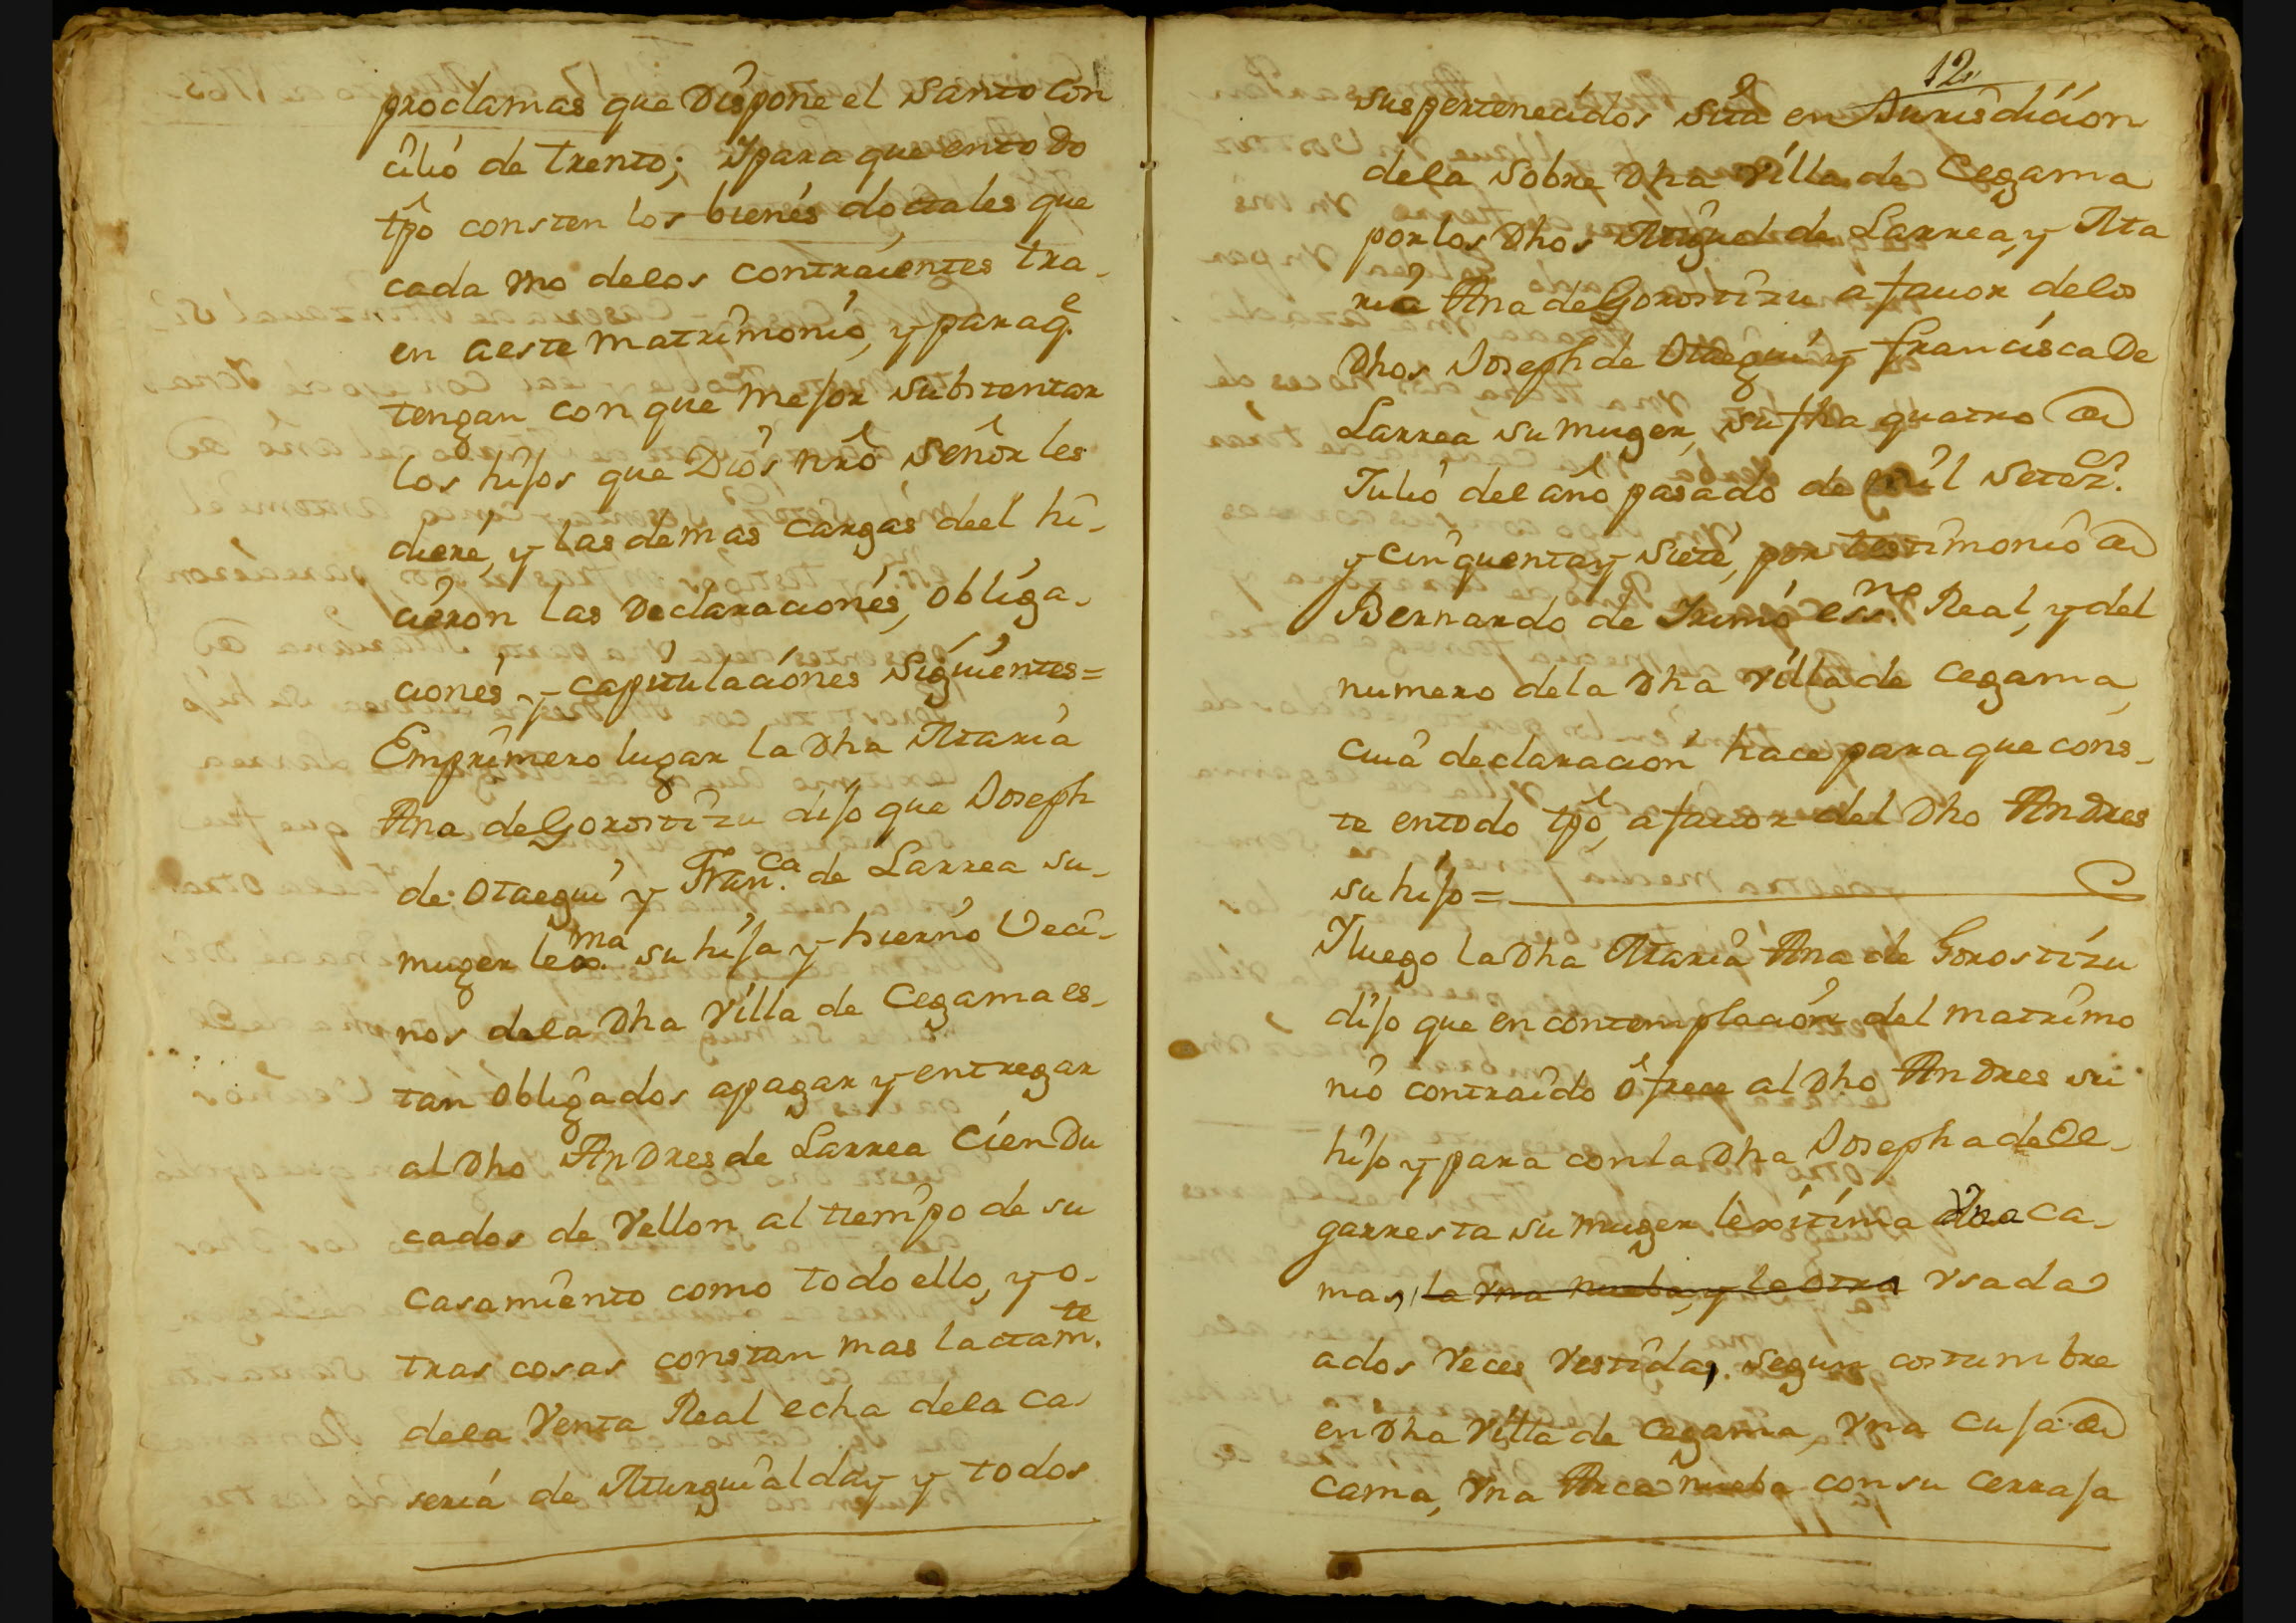 proclamas que Dispone el Santo Con
cilio de trento; Ypara que entodo
tpõ consten los bienes doctales que
cada vno delos contraientes tra-
en aeste matrimonio, y paraq.e
tengan con que mejor substentar
los hijos que Dios nrõ señor les
diere, y las demas cargas deel hi-
cieron las Declaraciones, obliga-
ciones y capitulaciones Siguientes=
Emprimero lugar la Dha Maria
Ana de Gorostizu dijo que Joseph
de Otaegui y Fran.ca de Larrea su-
muger lex.ma su hija y hierno Veci-
nos dela Dha Villa de Cegama es-
tan obligados apagar y entregar
al Dho Andres de Larrea Cien Du
cados de Vellon al tiempo de su
casamiento como todo ello, y o-
tras cosas constan mas lactam.te
dela Venta Real echa dela ca-
seria de Murguialday y todos
12
sus pertenecidos sita en Jurisdicion
dela sobre Dha Villa de Cegama
por los Dhos Miguel de Larrea, y Ma
ria Ana de Gorostizu a fauor delos
Dhos Joseph de Otaegui y francisca De
Larrea su muger, su fha quatro de
Julio del año pasado de mil setez.s
y cinquentay siete, por testimonio de
Bernardo de Irimo ess.no Real, y del
numero dela Dha Villa de Cegama,
cuia declaracion hace para que cons-
te entodo tpõ, a fauor del Dho Andres
su hijo =
Yluego la Dha Maria Ana de Gorostizu
dijo que en contemplacion del matrimo
nio contraido ofrece al Dho Andres su
hijo y para con la Dha Josepha de Ole-
garresta su muger lexitima Dos ca-
mas, la vna nueba, y la otra vsada
ados Veces Vestidas, segun costumbre
en Dha Villa de Cegama, Vna Cuja de
cama, Vna Arca nueba con su cerraja